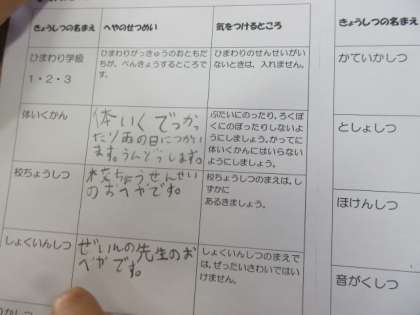 きょうしつの名まえ
へやのせつめい
気をつけるところ
ひまわり学級
1・2・3
ひまわりがっきゅうのおともだ
ちが、べんきょうするところで
す。
ひまわりのせんせいがい
ないときは、入れません。
体いくかん
体いくでつかっ
たり雨の日につかい
ます。うんどうします。
ぶたいにのったり、ろくぼ
くにのぼったりしないよ
うにしましょう。かってに
体いくかんにはいらない
ようにしましょう。
校ちょうしつ
校ちょうせんせい
のおへやです。
校ちょうしつのまえは、し
ずかに
あるきましょう。
しょくいんしつ
ぜいんの先生のお
へやです。
しょくいんしつのまえで
は、ぜったいさわいではい
けません。
きょうしつの名まえ
かていかしつ
としょしつ
ほけんしつ
音がくしつ